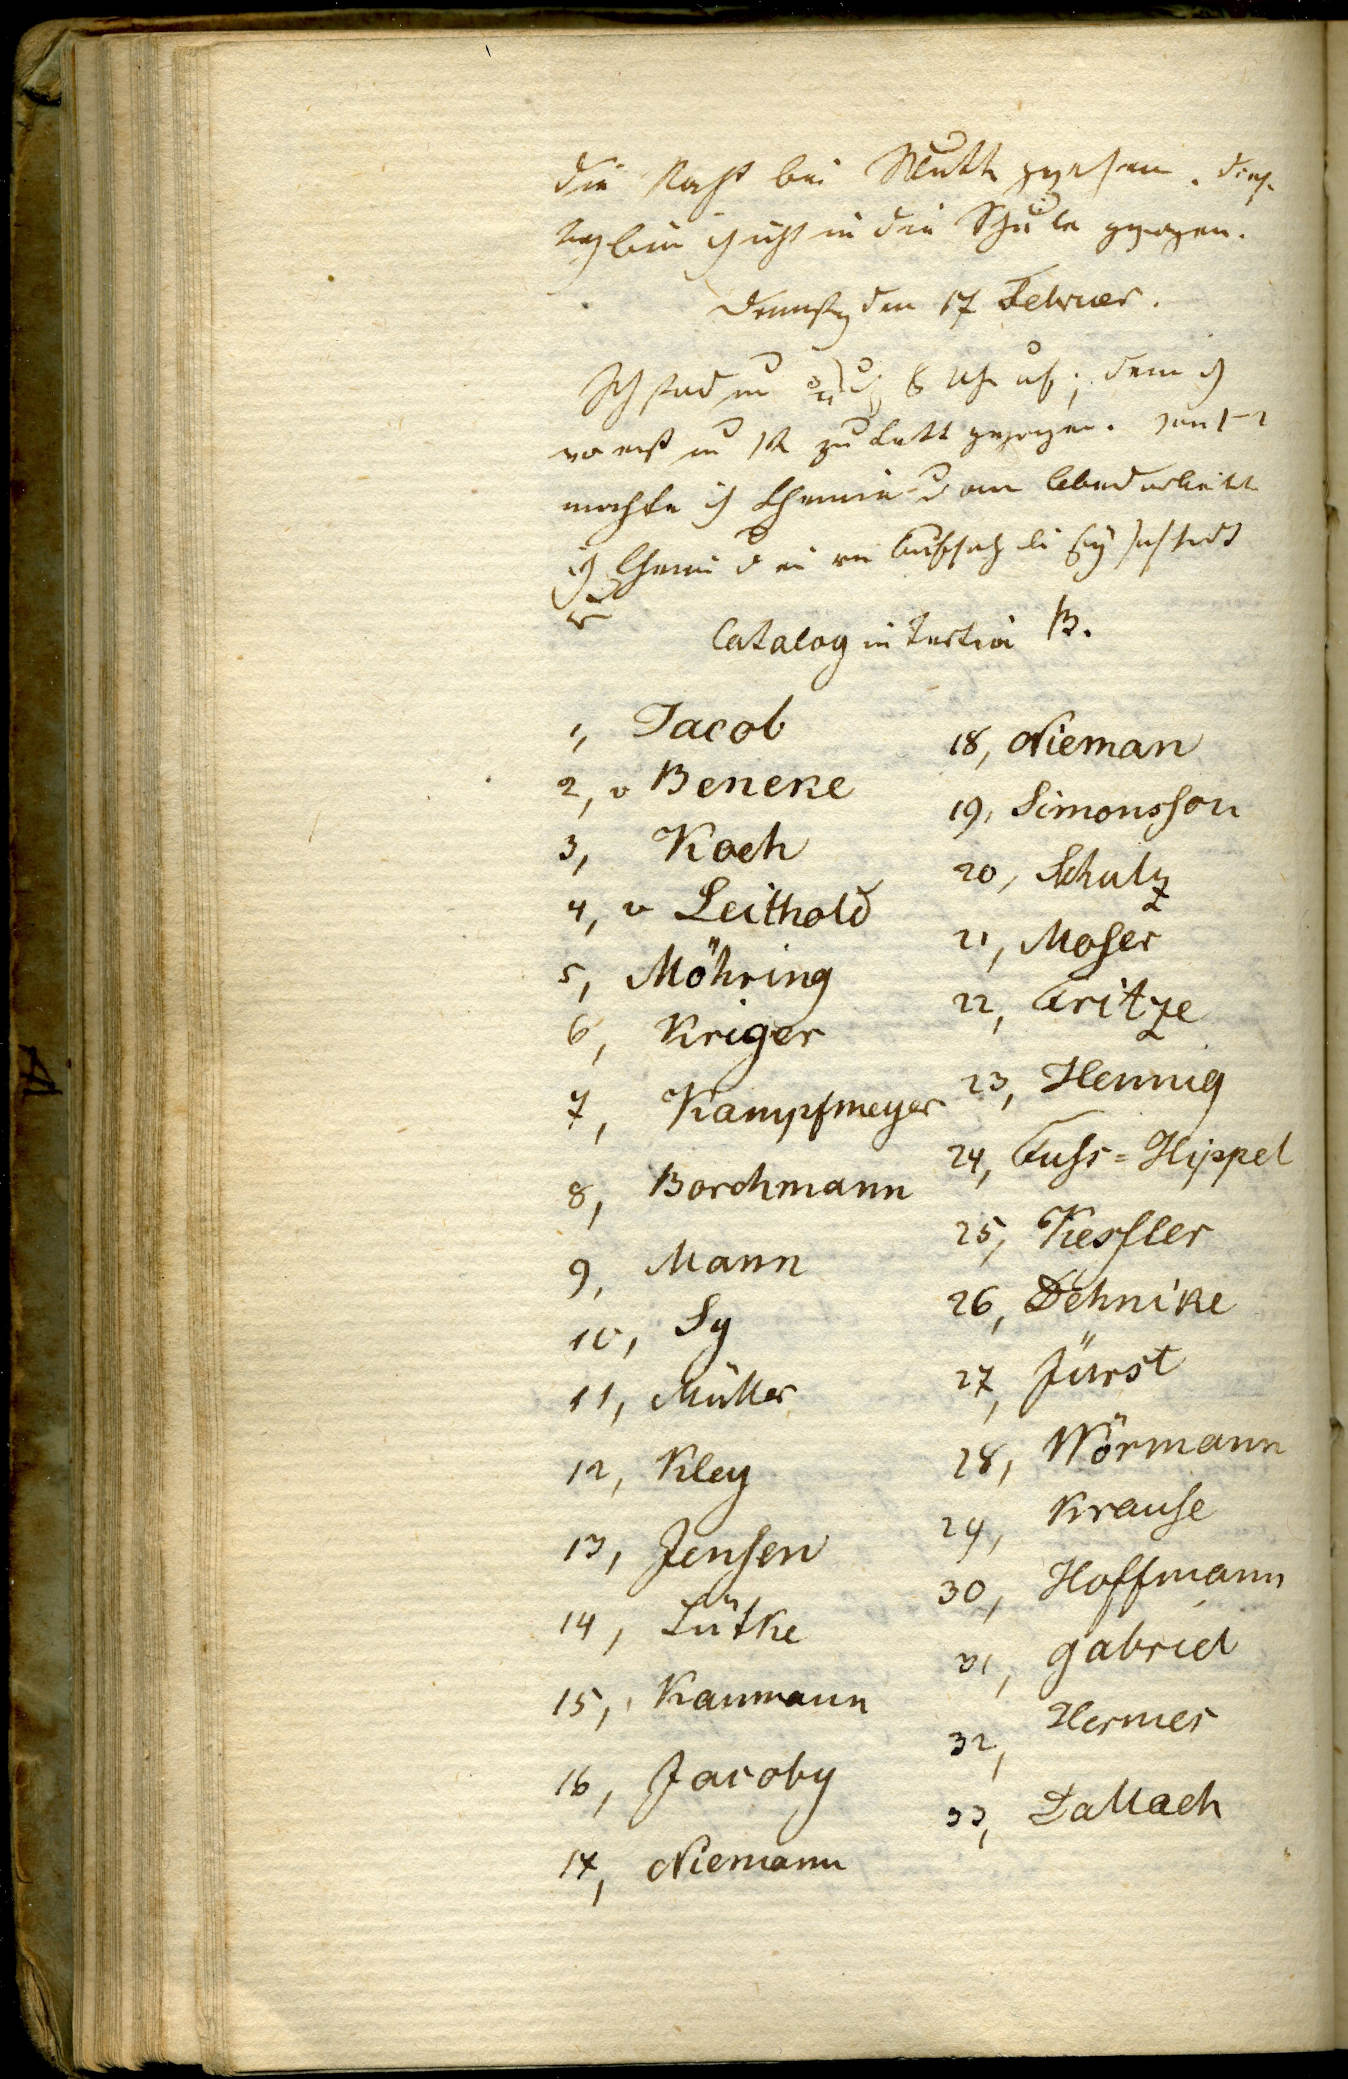 die Nacht bei Mutter gewesen. Diens-
tag bin ich nicht in die Schule gegangen.
Dienstag den 17 Februar.
Ich stand um 8 Uhr auf; denn ich
erst um 12 zu Bett gegangen. von 1-2
machte ich Chemie am Abend arbeitete
ich Chemie
Catalog in Tertia B.
1, Jacob
2, v Beneke
3, Koch
4, v Leithold
5, Möhring
6, Kriger
7, Kampfmeyer
8, Borchmann
9, Mann
10, Sy
11, Müller
12, Kley
13, Jensen
14, Lütke
15, Kaumann
16, Jacoby
17, Niemann
18, Nieman
19, Simonsson
20, Schulz
21, Moser
22, Fritze
23, Hennig
24, Fuss=Hippel
25, Kessler
26, Dehnike
27, Fürst
28, Wörmann
29, Krause
30, Hoffmann
31, Gabriel
32, Hermes
33, Dallach